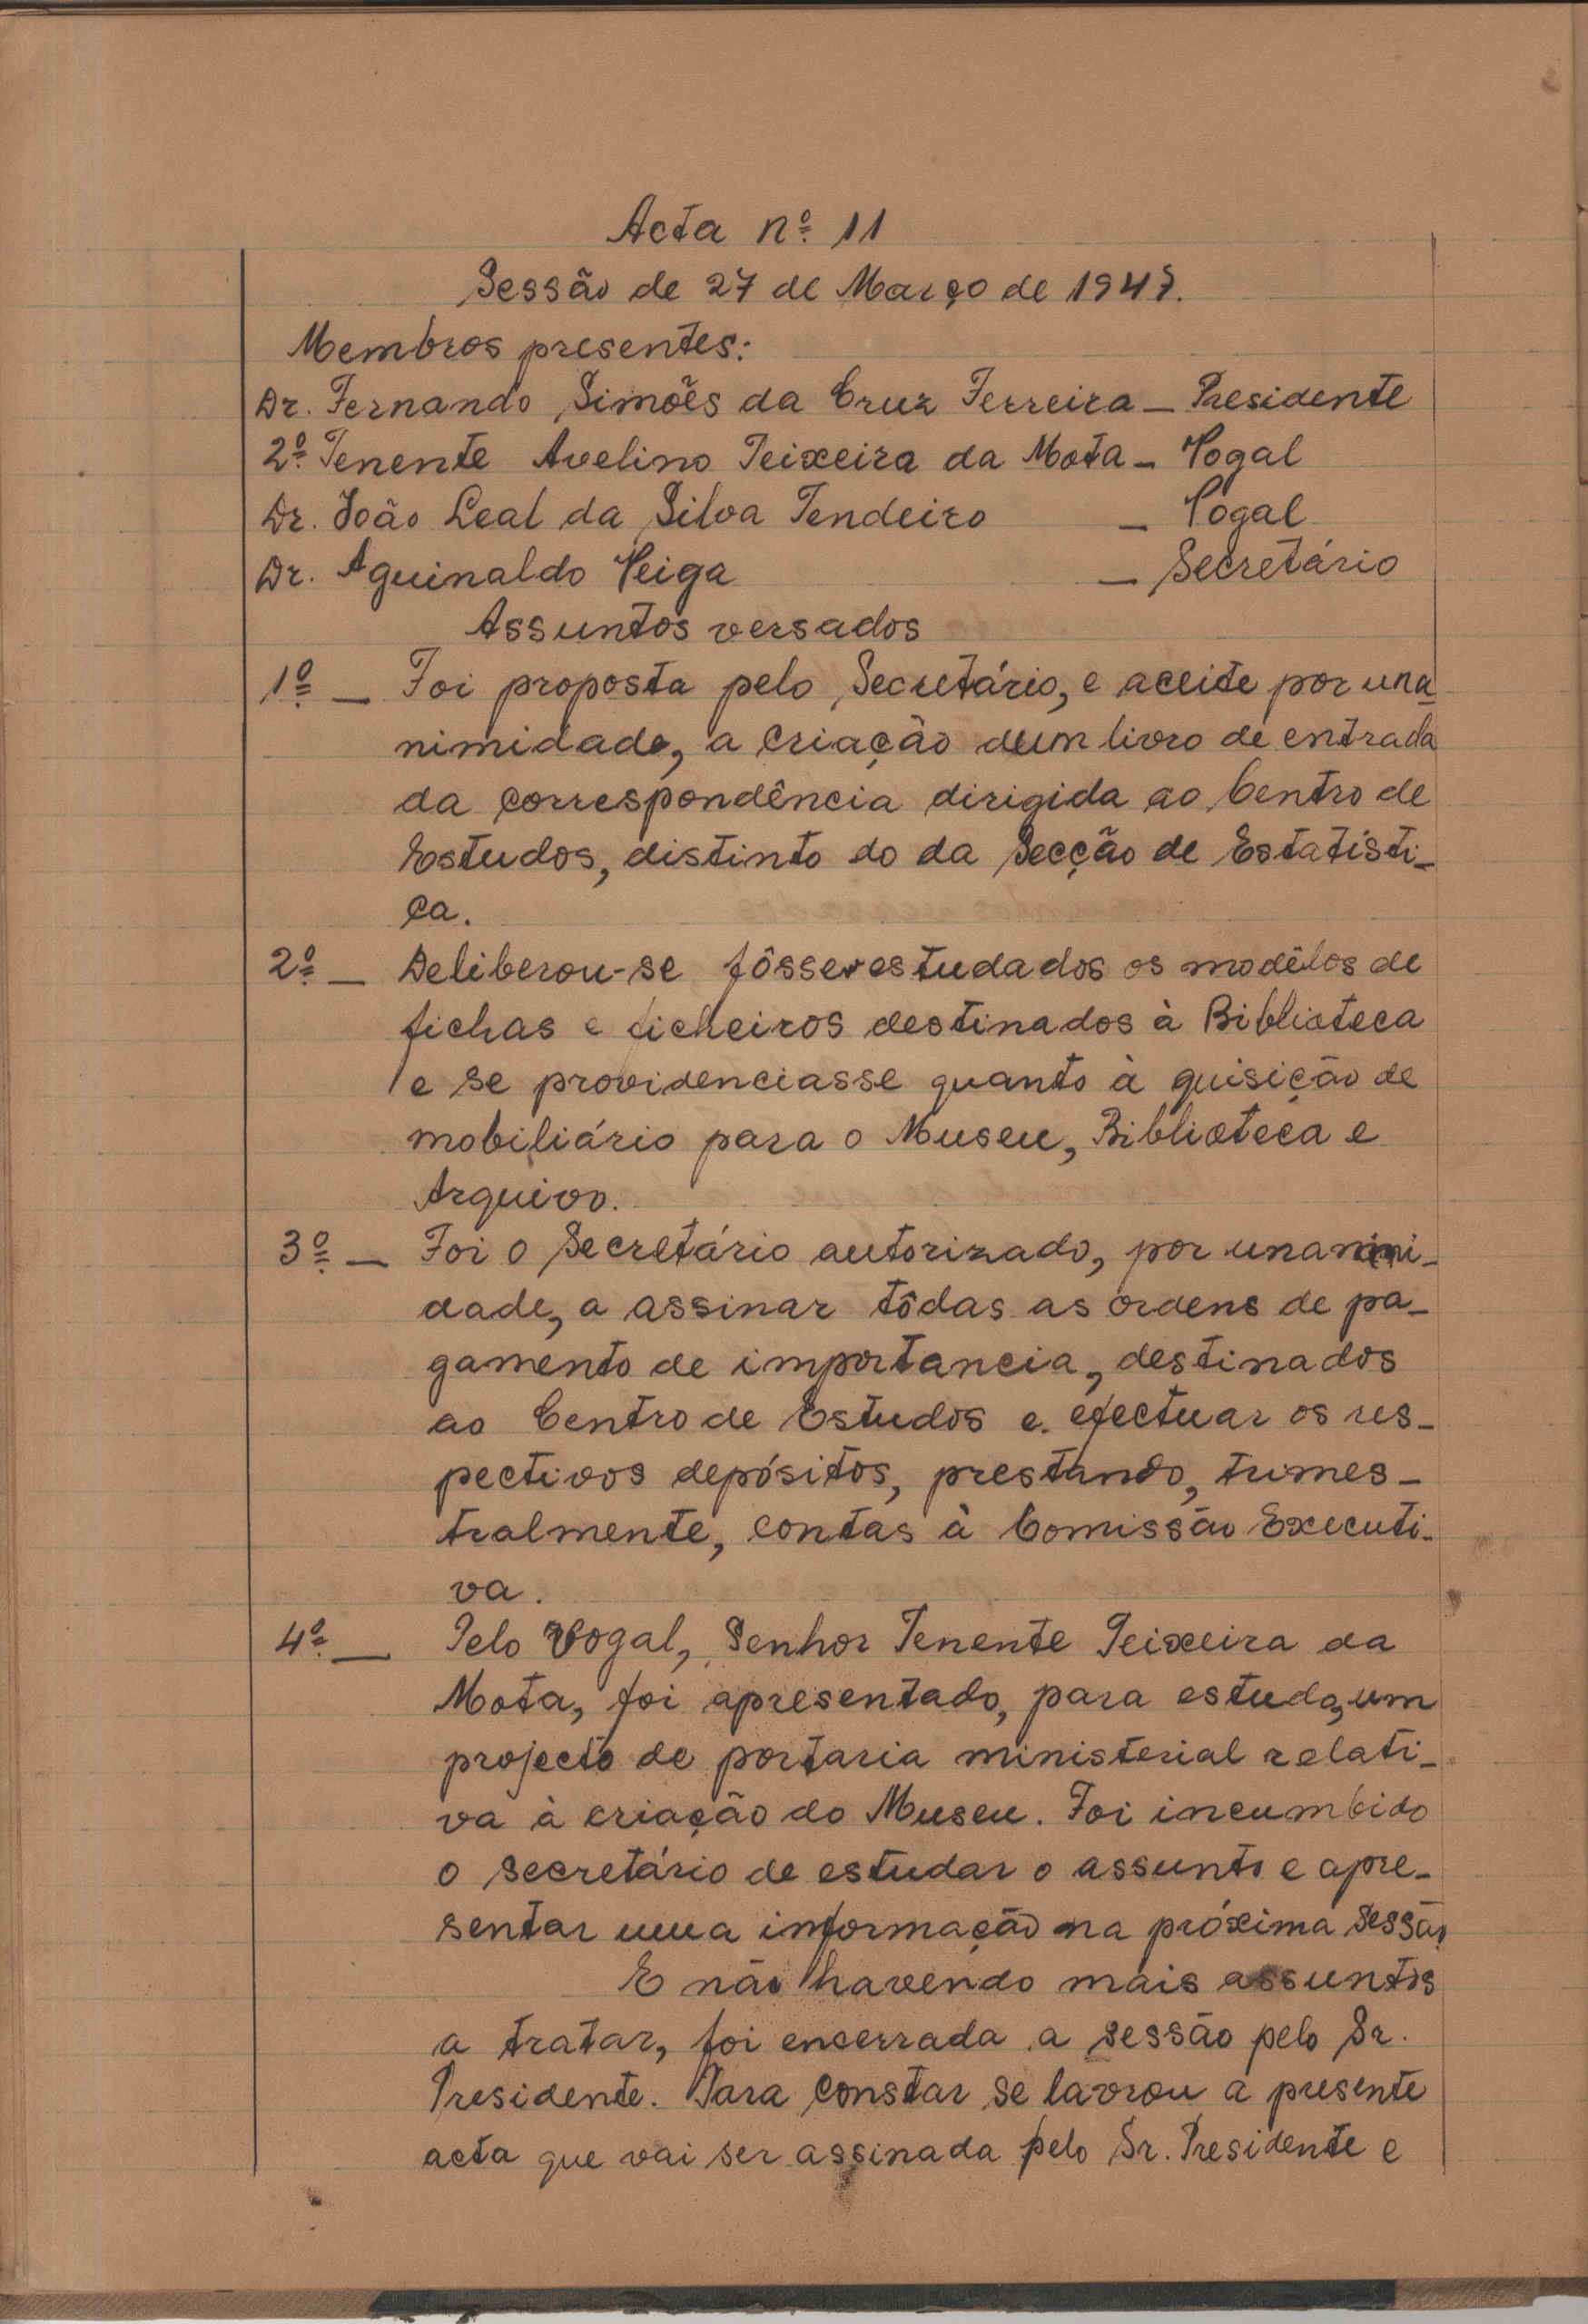 Acta nº 11
Sessão de 27 de Março de 1947.
Membros presentes:
Dr. Fernando Simões da Cruz Ferreira — Presidente
2º Tenente Avelino Teixeira da Mota — Vogal
Dr. João Leal da Silva Tendeiro — Vogal
Dr. Aguinaldo Veiga — Secretário
Assuntos versados
1º — Foi proposta pelo Secretário, e aceite por una-
nimidade, a criação dum livro de entrada
da correspondência dirigida ao Centro de
Estudos, distinto do da Secção de Estatísti-
ca.
2º — Deliberou-se fôssem estudados os modêlos de
fichas e ficheiros destinados à Biblioteca
e se providenciasse quanto à quisição de
mobiliário para o Museu, Biblioteca e
Arquivo.
3º — Foi o Secretário autorizado, por unanimi-
dade, a assinar tôdas as ordens de pa-
gamento de importancia, destinados
ao Centro de Estudos e efectuar os res-
pectivos depósitos, prestando, trimes-
tralmente, contas à Comissão Executi-
va.
4º — Pelo Vogal, Senhor Tenente Teixeira da
Mota, foi apresentado, para estudo, um
projecto de portaria ministerial relati-
va à criação do Museu. Foi incumbido
o secretário de estudar o assunto e apre-
sentar uma informação na próxima sessão.
E não havendo mais assuntos
a tratar, foi encerrada a sessão pelo Sr.
Presidente. Para constar se lavrou a presente
acta que vai ser assinada pelo Sr. Presidente e